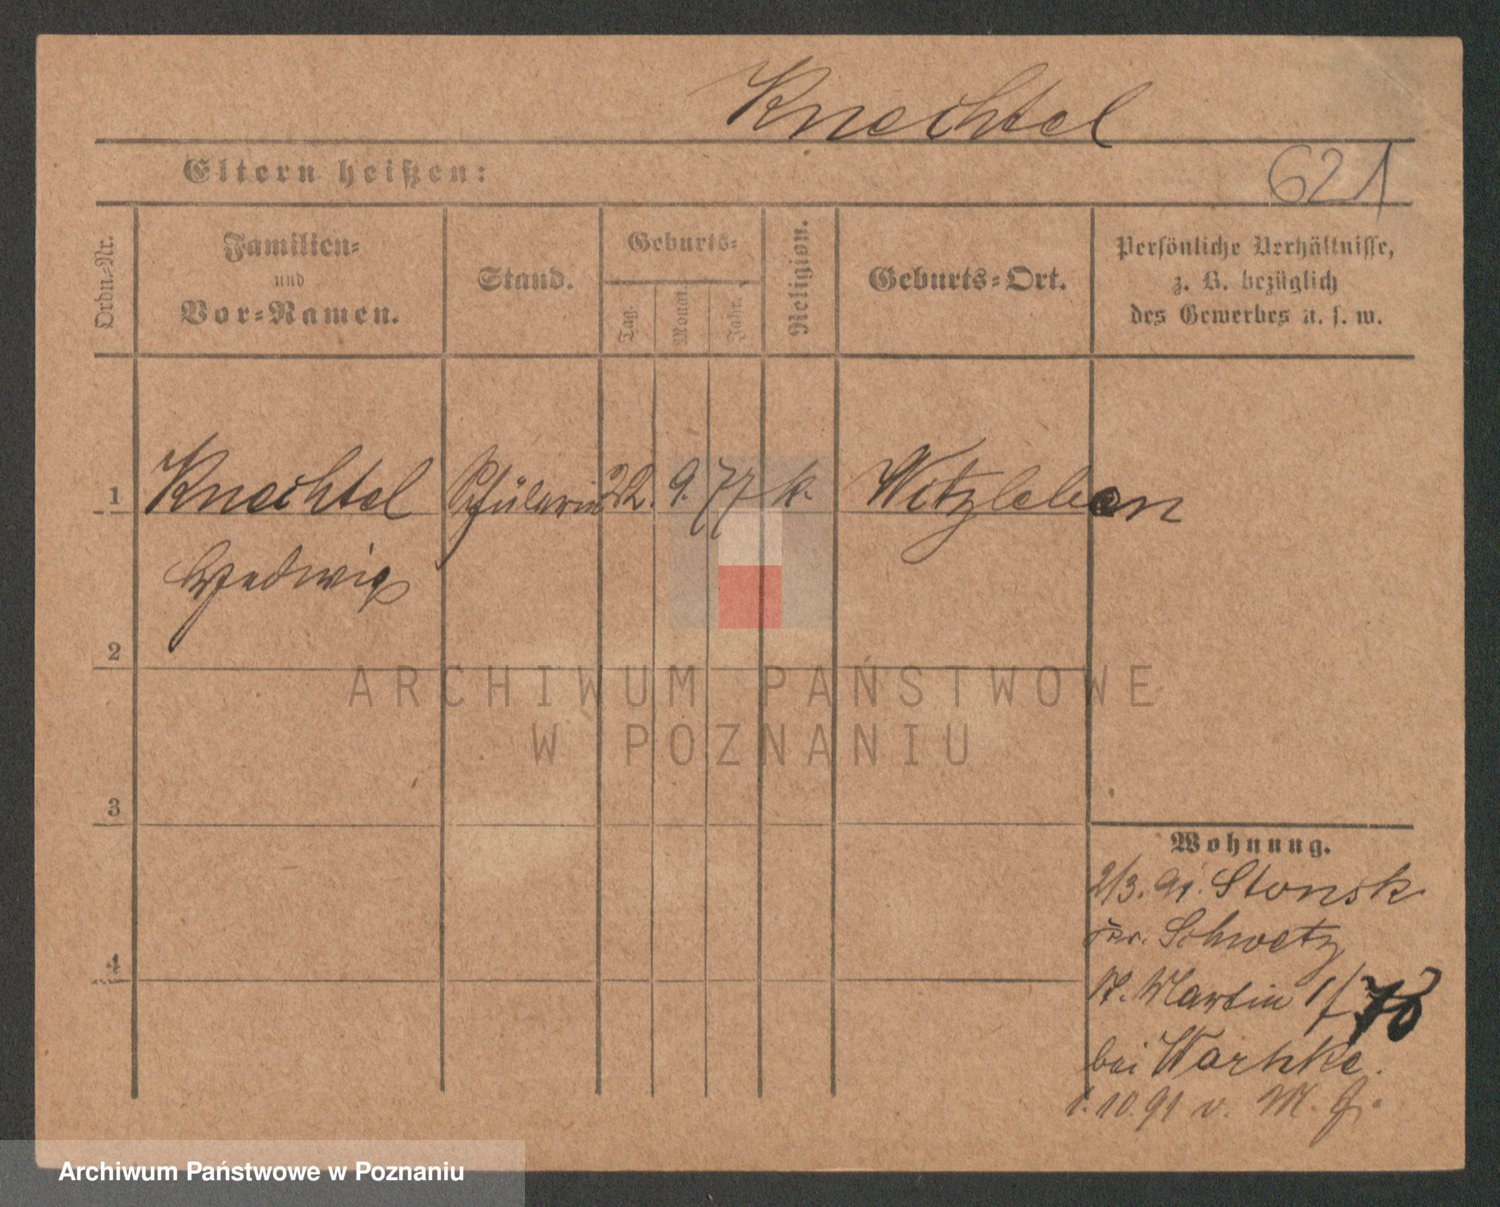 Knechtel
Eltern heißen:
621
Ordn.-Nr.
Familien-
und
Vor-Namen.
Stand.
Geburts-
Tag.
Monat.
Jahr.
Religion.
Geburts-Ort.
Persönliche Verhältnisse,
z. B. bezüglich
des Gewerbes u. s. w.
1 Knechtel Schülerin 22. 9. 77 k. Witzleben
Hedwig
2
3
4
ARCHIWUM PAŃSTWOWE
W POZNANIU
Wohnung.
2/3. 91. Slonsk
Schwetz
St. Martin 78
bei Warnke.
1.10.91 v.
Archiwum Państwowe w Poznaniu